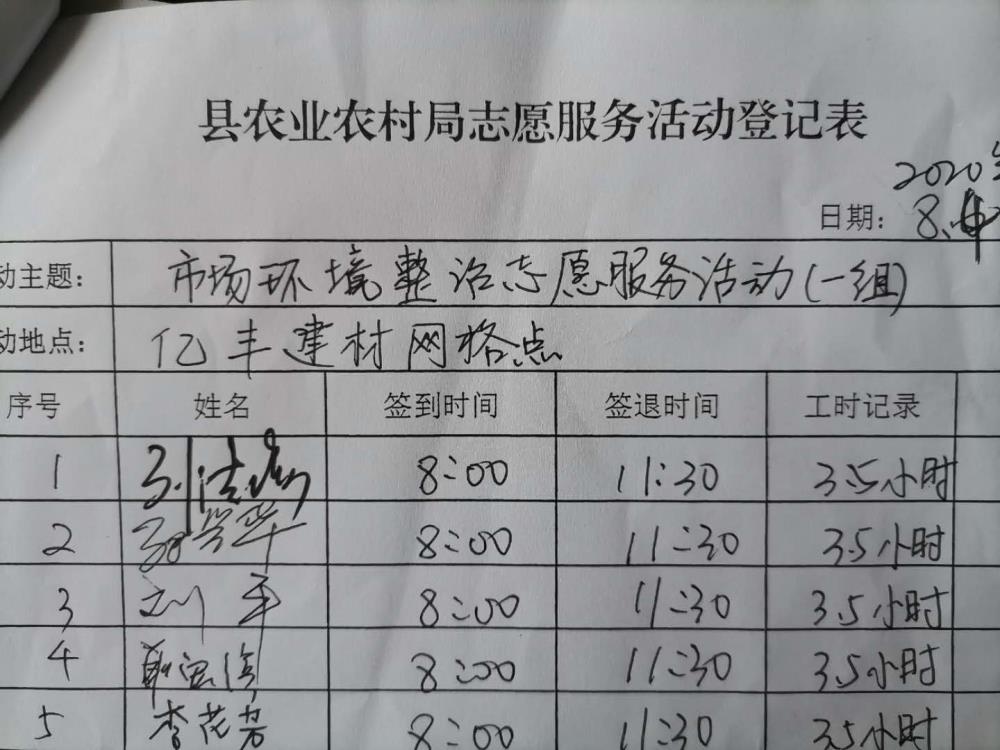 县农业农村局志愿服务活动登记表
2020年
日期: 8.4
动主题: 市场环境整治志愿服务活动(一组)
动地点: 亿丰建材网格点
序号 姓名 签到时间 签退时间 工时记录
1 8:00 11:30 3.5小时
2 8:00 11:30 3.5小时
3 刘平 8:00 11:30 3.5小时
4 8:00 11:30 3.5小时
5 李花芳 8:00 11:30 3.5小时